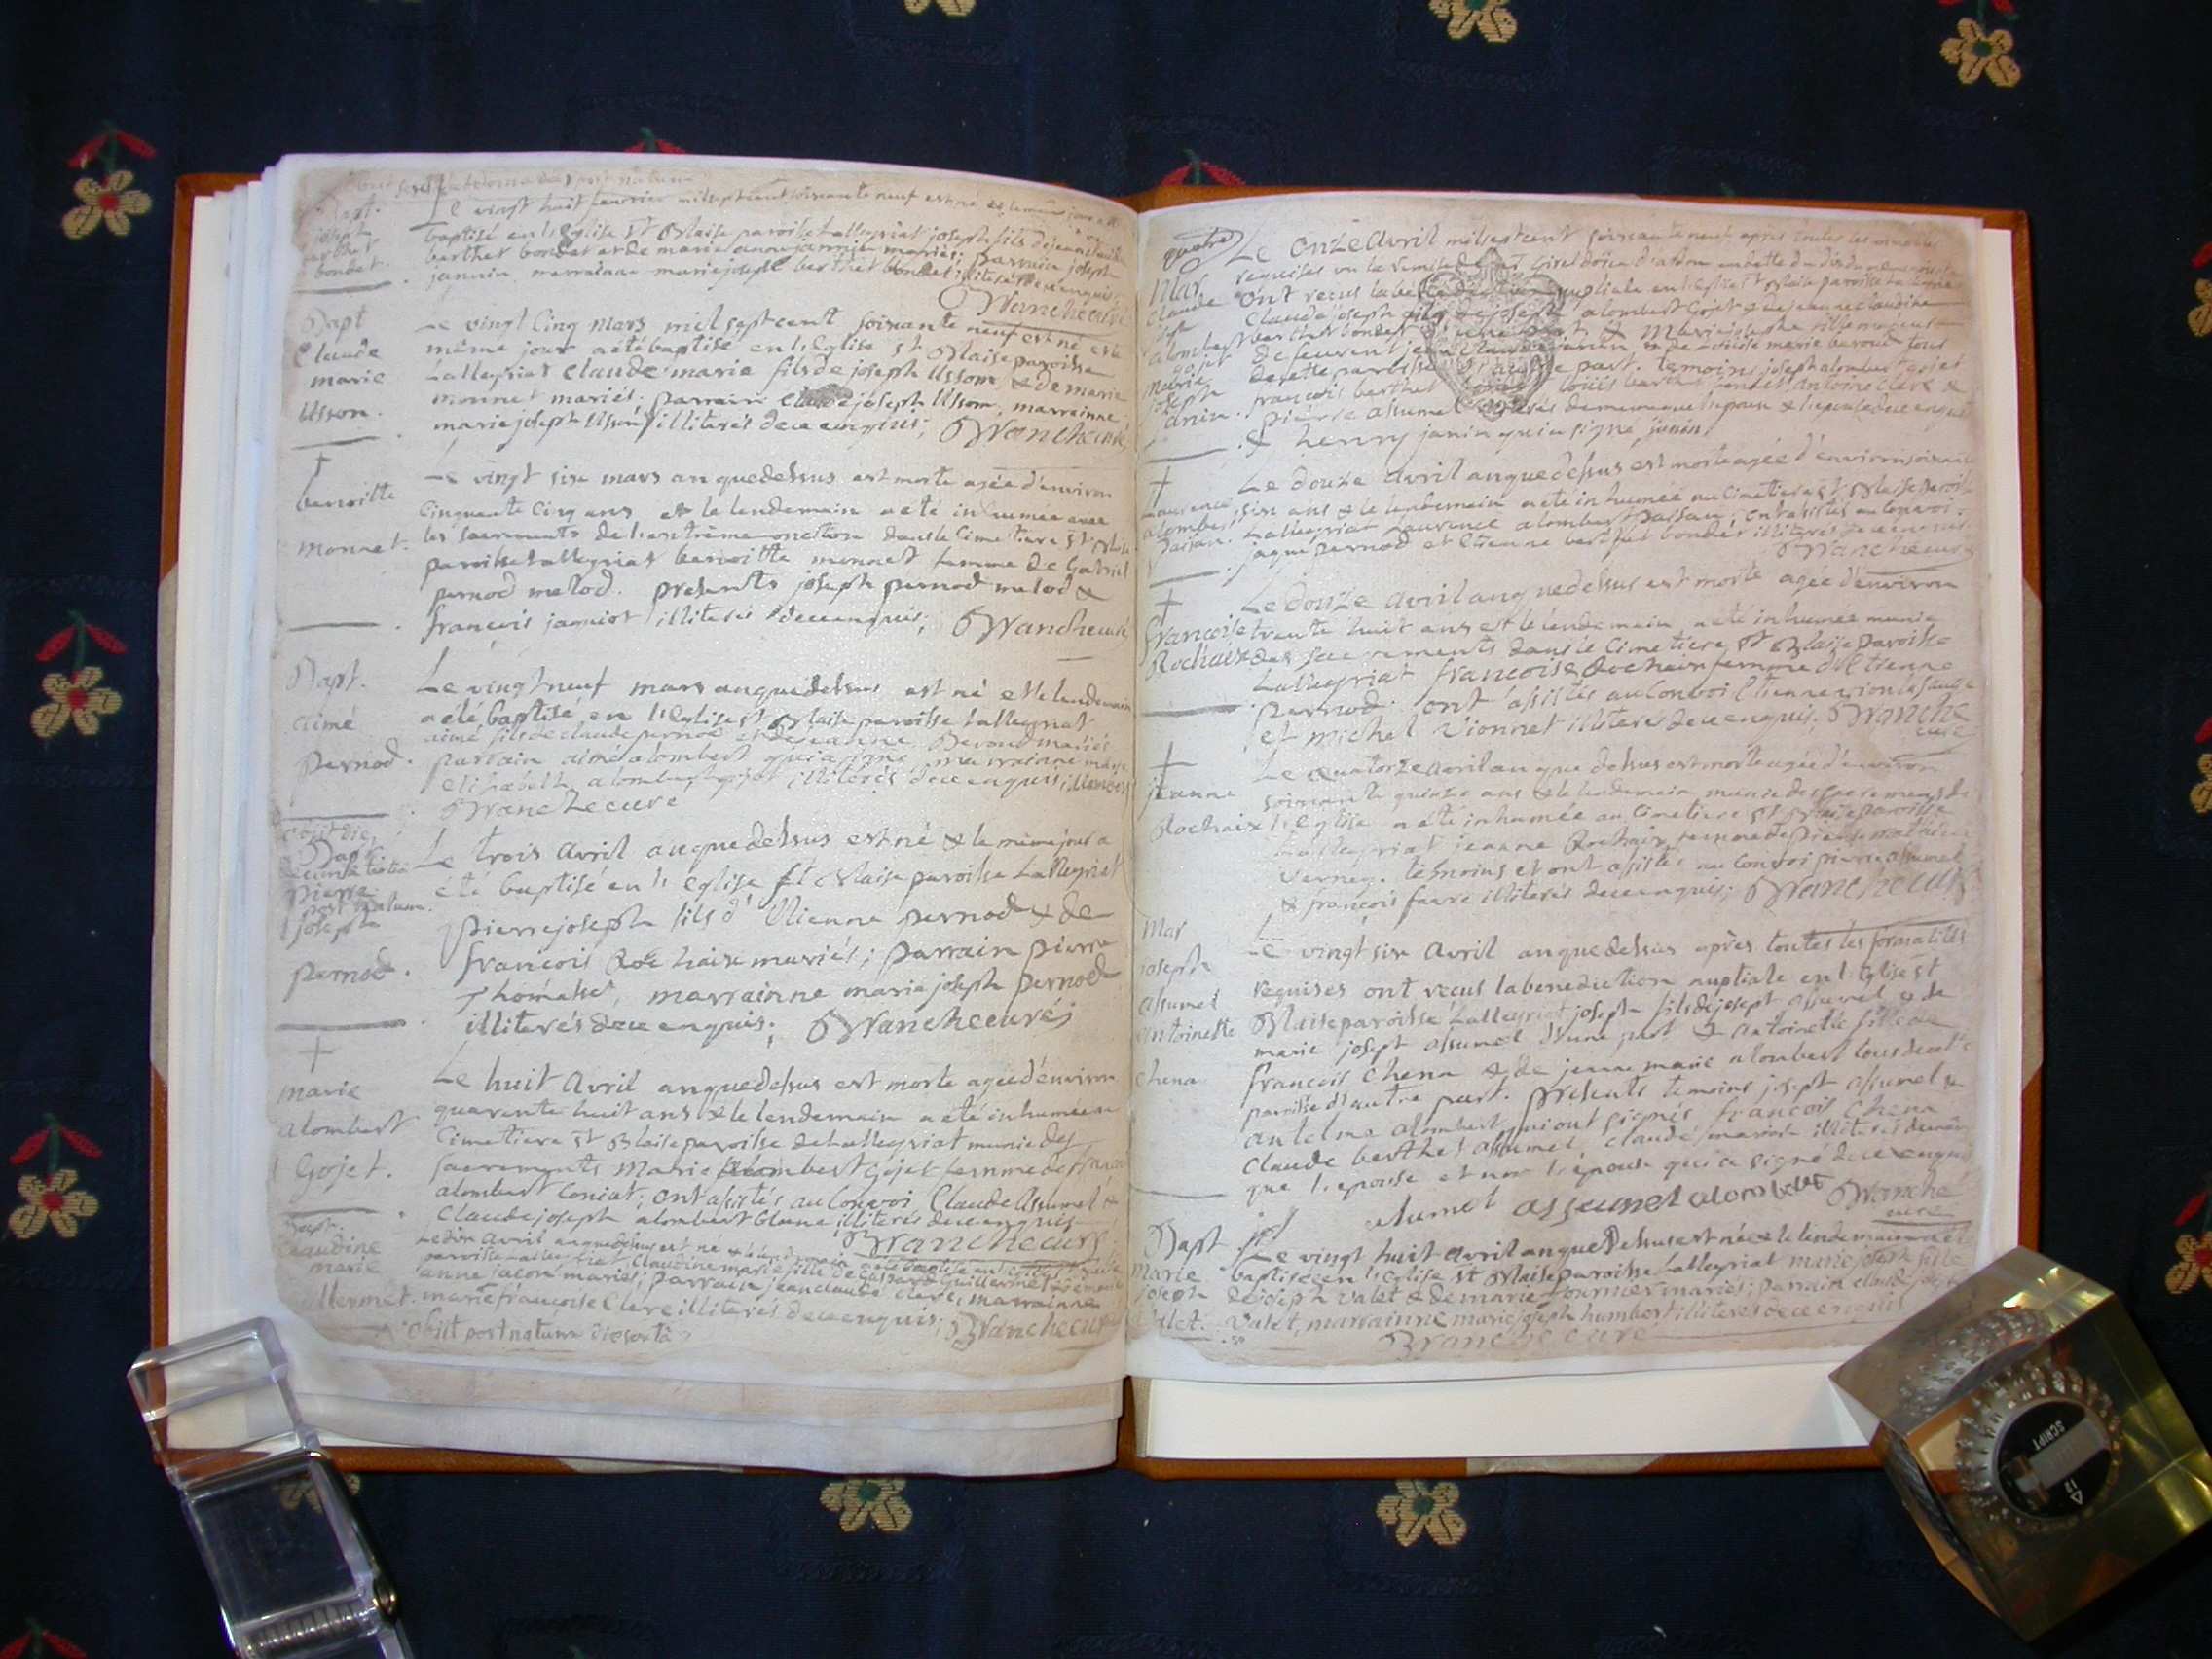 Bapt.
joseph
berthet
bondet.
Le vingt huit fevrier mil sept cent soixante neuf est né et le meme jour a été
baptisé en l'eglise st Blaise paroisse Lalleyriat joseph fils de jean claude
berthet bondet et de marie anne jannin mariés; parrain joseph
jannin marrainne marie joseph berthet bondet illiterés de ce enquis;
Branche curé
Bapt
Claude
marie
Usson.
Le vingt Cinq Mars mil sept cent soixante neuf est né et le
même jour a été baptisé en l'Eglise st Blaise paroisse
Lalleyriat Claude marie fils de joseph Usson & de marie
monnet mariés. parrain Claude joseph Usson, marrainne
marie joseph Usson illiterés de ce enquis; Branche curé
†
benoitte
monnet.
Le vingt six mars an que dessus est morte agée d'environ
Cinquante Cinq ans et le lendemain a été inhumée avec
les sacrements de l'extrême onction dans le Cimetiere st Blaise
paroisse Lalleyriat benoitte monnet femme de Gabriel
pernod melod. presents joseph pernod melod &
francois jaquiot illiterés de ce enquis; Branche curé
Bapt.
aimé
pernod.
Le vingt neuf mars an que dessus est né et le lendemain
a été baptisé en l'Eglise st Blaise paroisse Lalleyriat
aimé fils de claude pernod et de jeanne Beroud mariés
parrain aimé alombert qui a signé, marrainne marie
Elisabeth alombert gojet illiterés de ce enquis;
Branche curé
obiit die
Bapt
pierre
post natum
joseph
pernod.
Le trois Avril an que dessus est né & le même jour a
été baptisé en l'eglise st Blaise paroisse Lalleyriat
pierre joseph fils d'Etienne pernod & de
francoise Rochaix mariés; parrain pierre
Thomasset, marrainne marie joseph pernod
illiterés de ce enquis; Branche curé
†
marie
alombert
Gojet.
Le huit Avril an que dessus est morte agée d'environ
quarante huit ans & le lendemain a été inhumée au
Cimetiere st Blaise paroisse de Lalleyriat munie des
sacrements Marie alombert Gojet femme de francois
alombert Coniat; ont assistés au Convoi Claude Assumel &
Claude joseph alombert illiterés de ce enquis
Branche curé
Bapt.
Claudine
marie
Guillermet.
Le dix Avril an que dessus est né & le lendemain a été baptisé en l'eglise st Blaise
paroisse Lalleyriat Claudine marie fille de Gaspard Guillermet
anne jacon mariés; parrain jean claude Clerc, marrainne
marie francoise Clerc illiterés de ce enquis;
Branche curé
obiit post natum die sexta
quatre
Mar
Claude
jsph
alombert
gojet
marie
joseph
janin.
Le onze Avril mil sept cent soixante neuf après toutes les formalités
requises vu la remise
ont recus la benediction nuptiale en l'eglise st Blaise paroisse Lalleyriat
Claude joseph fils de joseph alombert Gojet & de jeanne claudine
berthet bondet d'une part & Marie josephe fille majeure
de feu jean Claude janin & de Louise marie beroud tous
de cette paroisse d'autre part. temoins joseph alombert gojet
francois berthet bondet louis berthet bondet antoine clerc &
pierre assumel illiterés de meme que l'epoux & l'epouse de ce enquis
& henry janin qui a signé janin
†
Laurence
alombert
paisan.
Le douze Avril an que dessus est morte agée d'environ soixante
six ans & le lendemain a été inhumée au Cimetiere st Blaise paroisse
Lalleyriat Laurence alombert paisan, ont assistés au Convoi
jaque pernod et Etienne berthet bondet illiterés de ce enquis
Branche curé
†
francoise
Rochaix
Le Douze Avril an que dessus est morte agée d'environ
trente huit ans et le lendemain a été inhumée munie
des sacrements dans le Cimetiere st Blaise paroisse
Lalleyriat francoise Rochaix femme d'Etienne
pernod. ont assistés au Convoi Etienne
et michel Vionnet illiterés de ce enquis; Branche
curé
†
jeanne
Rochaix
Le quatorze avril an que dessus est morte agée d'environ
soixante quinze ans & le lendemain munie des sacrements de
l'Eglise a été inhumée au Cimetiere st Blaise paroisse
Lalleyriat jeanne Rochaix femme de pierre mathieu
Verney. témoins et ont assistés au Convoi pierre assumel
& francois favre illiterés de ce enquis; Branche curé
Mar
joseph
assumel
antoinette
chena
Le vingt six Avril an que dessus après toutes les formalités
requises ont recus la benediction nuptiale en l'Eglise st
Blaise paroisse Lalleyriat joseph fils de josept assumel & de
marie josept assumel d'une part & antoinette fille de
francois Chena & de jeanne marie alombert tous de cette
paroisse d'autre part. presents temoins joseph assumel &
antelme alombert qui ont signés francois Chena
Claude berthet assumel, Claude illiterés de meme
que l'epouse et non l'epoux qui a signé de ce enquis
assumel assumel alombert Branche
curé
Bapt
Marie
joseph
Valet.
Le vingt huit Avril an que Dessus est née & le lendemain a été
baptisée en l'Eglise st Blaise paroisse Lalleyriat marie joseph fille
de joseph Valet & de marie fournier mariés; parrain claude joseph
Valet, marrainne marie joseph humbert illiterés de ce enquis
Branche curé
SCRIPT
17